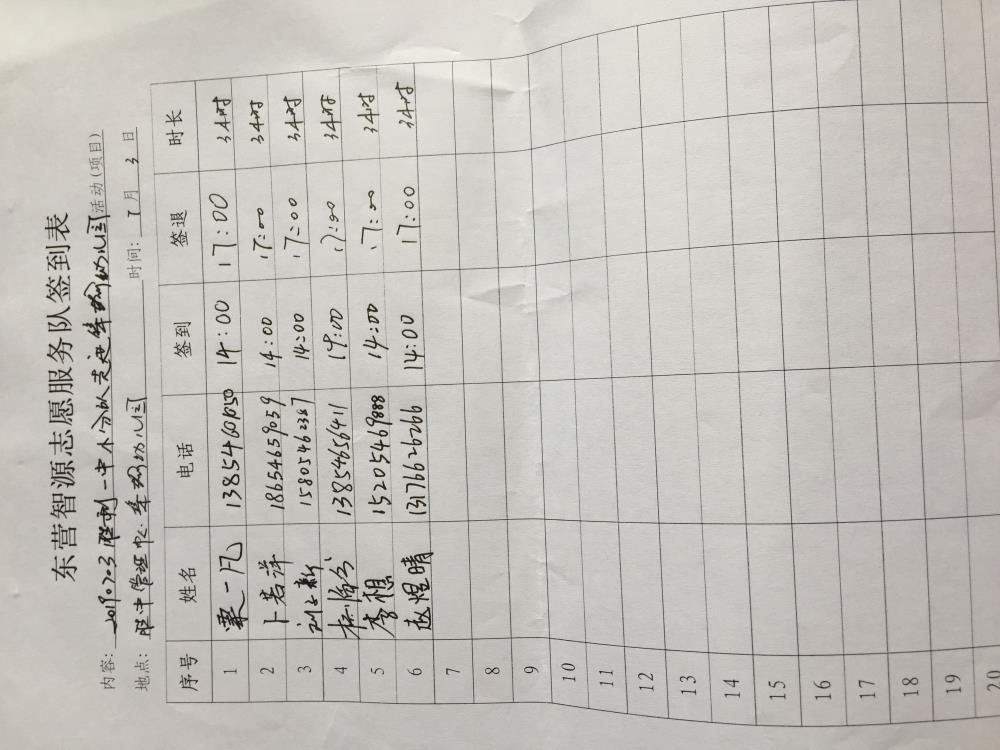 东营智源志愿服务队签到表
内容: 20190703胜利一中小分队走进华娇幼儿园活动(项目)
地点: 胜中管理中心华娇幼儿园 时间: 7月3日
序号 姓名 电话 签到 签退 时长
1 粟一凡 1385460050 14:00 17:00 3小时
2 卜若萍 18654659059 14:00 17:00 3小时
3 15805462387 14:00 17:00 3小时
4 13854656411 14:00 17:00 3小时
5 李想 15205469888 14:00 17:00 3小时
6 赵煜晴 13176626266 14:00 17:00 3小时
7
8
9
10
11
12
13
14
15
16
17
18
19
20